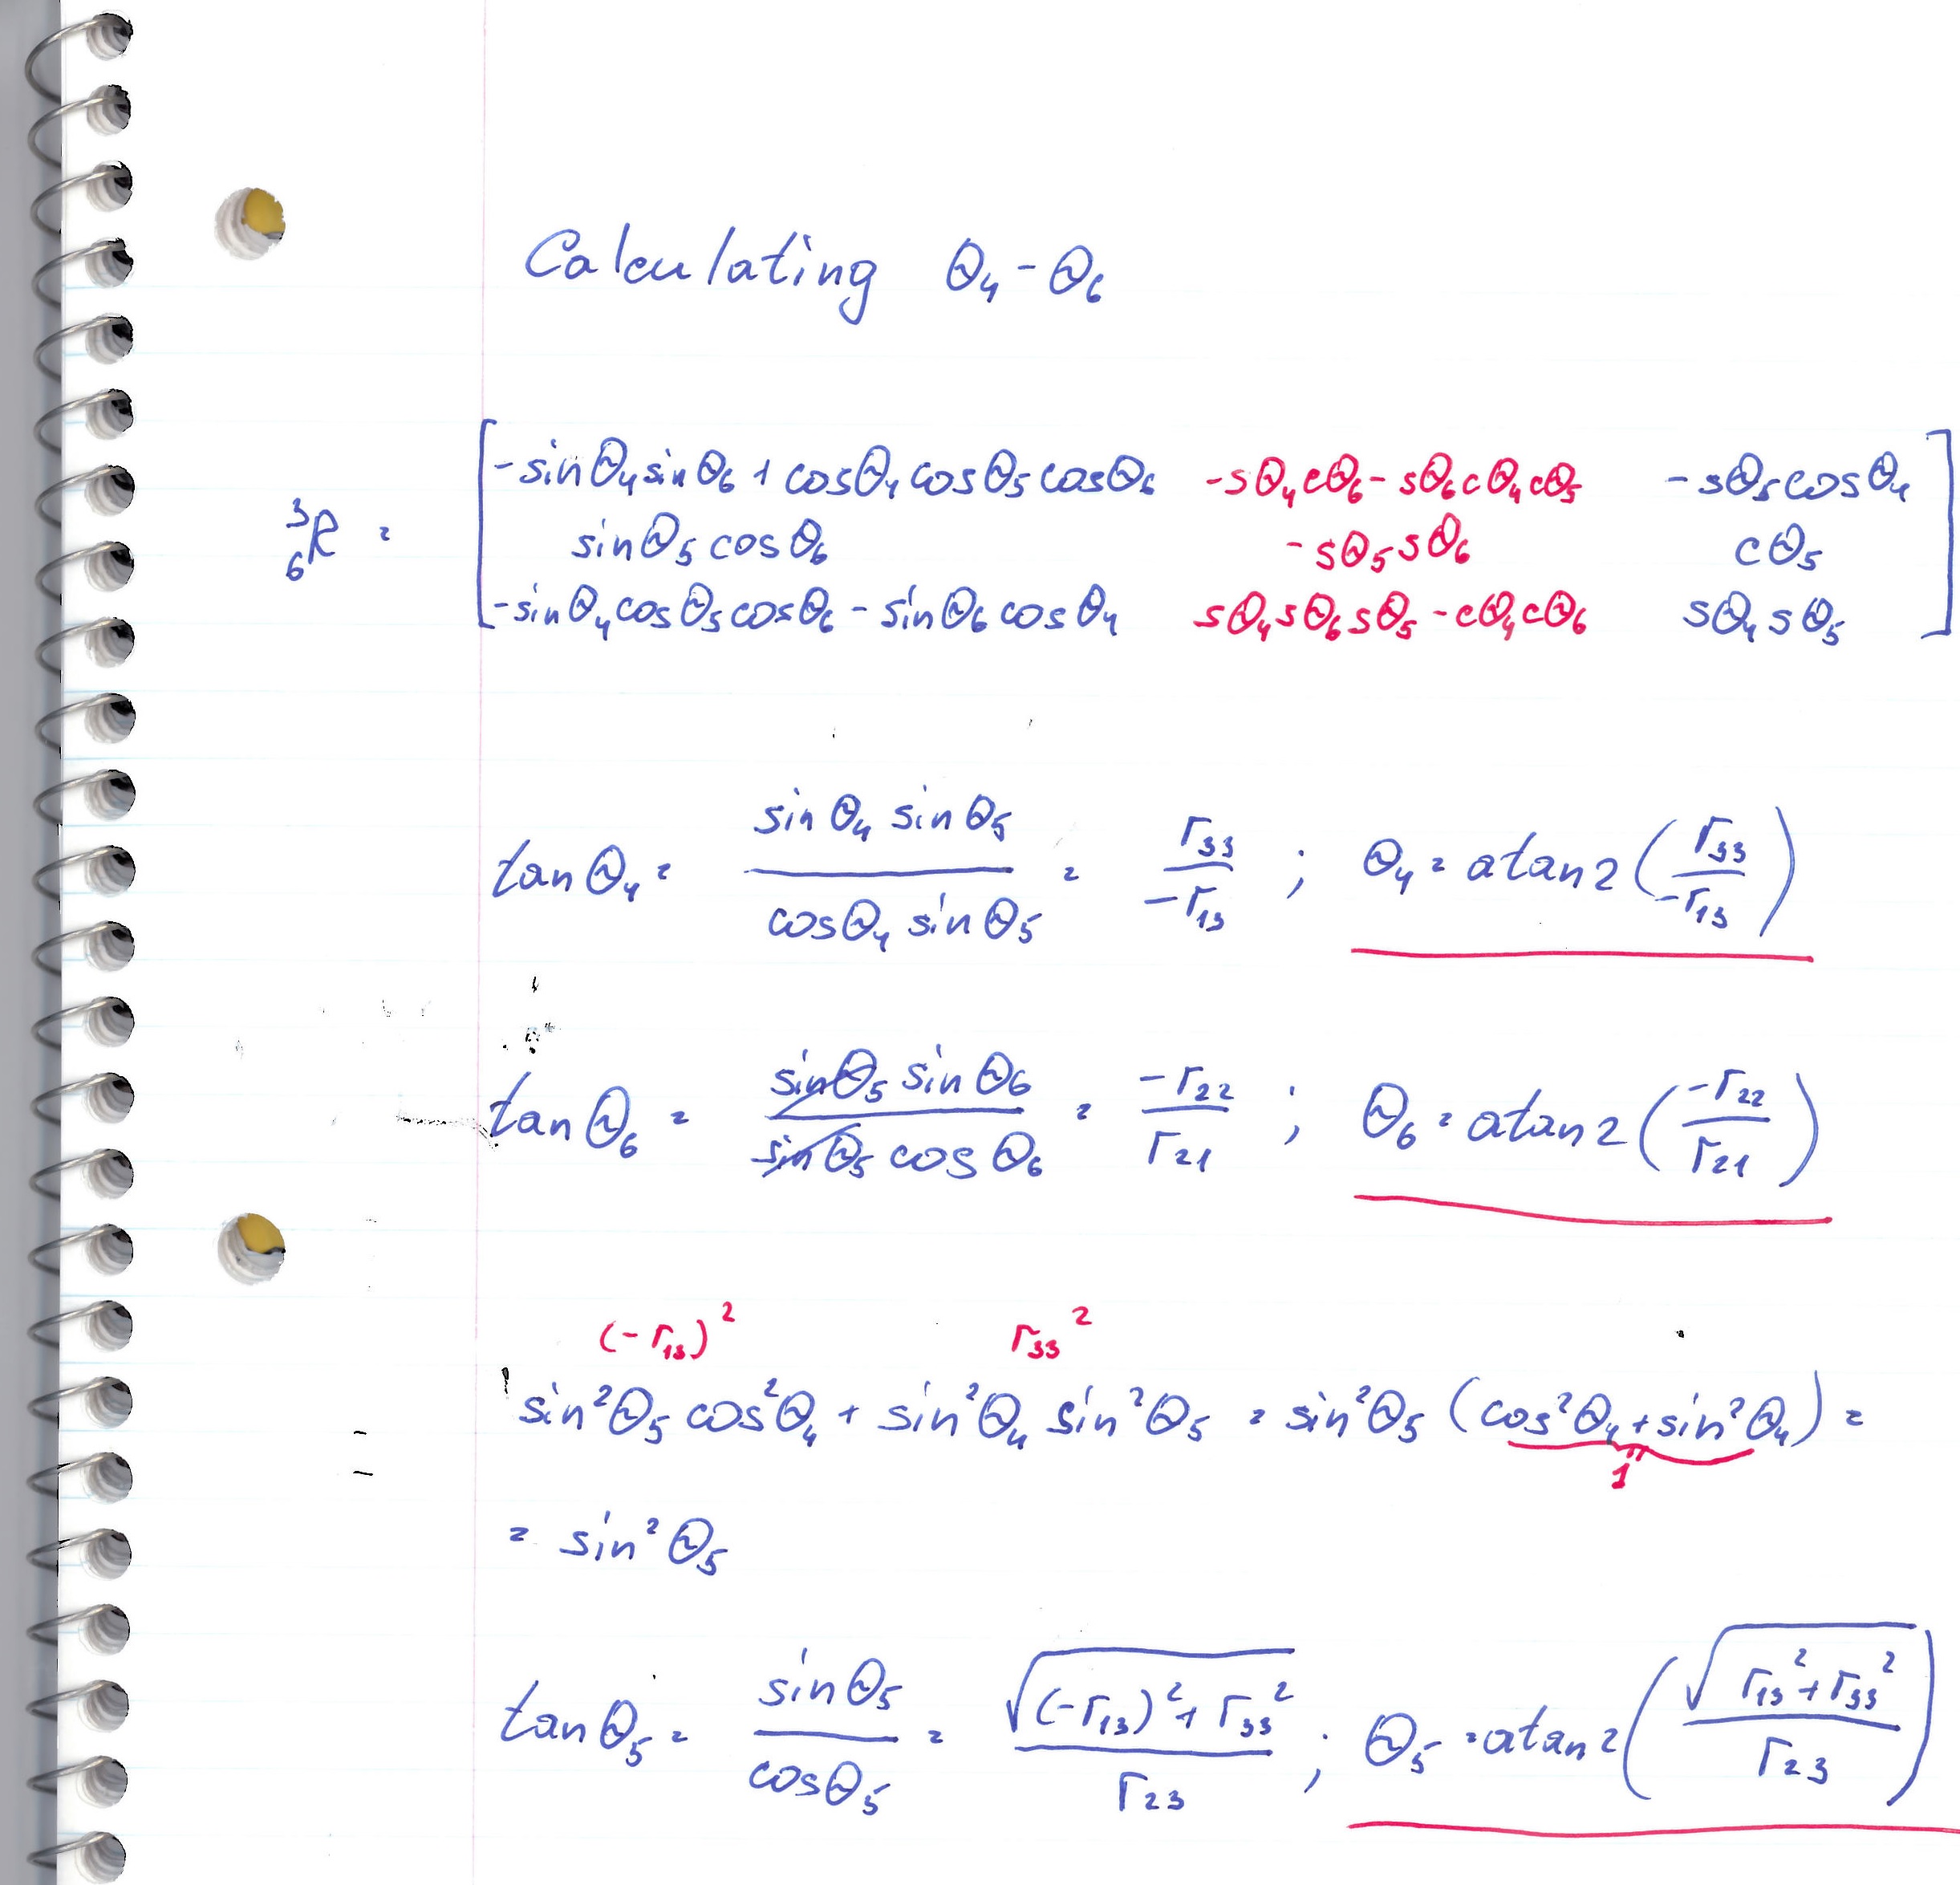 Calculating θ₄ - θ₆
³₆R = [ -sinθ₄sinθ₆ + cosθ₄cosθ₅cosθ₆   -sθ₄cθ₆ - sθ₆cθ₄cθ₅   -sθ₅cosθ₄
sinθ₅cosθ₆   -sθ₅sθ₆   cθ₅
-sinθ₄cosθ₅cosθ₆ - sinθ₆cosθ₄   sθ₄sθ₆sθ₅ - cθ₄cθ₆   sθ₄sθ₅ ]
tanθ₄ = (sinθ₄ sinθ₅)/(cosθ₄ sinθ₅) = r₃₃/-r₁₃ ; θ₄ = atan2(r₃₃/-r₁₃)
tanθ₆ = (sinθ₅ sinθ₆)/(sinθ₅ cosθ₆) = -r₂₂/r₂₁ ; θ₆ = atan2(-r₂₂/r₂₁)
(-r₁₃)²   r₃₃²
sin²θ₅ cos²θ₄ + sin²θ₄ sin²θ₅ = sin²θ₅ (cos²θ₄ + sin²θ₄) =
1
= sin²θ₅
tanθ₅ = sinθ₅/cosθ₅ = √((-r₁₃)² + r₃₃²)/r₂₃ ; θ₅ = atan2(√(r₁₃² + r₃₃²)/r₂₃)